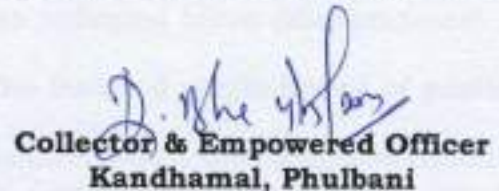 Collector & Empowered Officer
Kandhamal, Phulbani